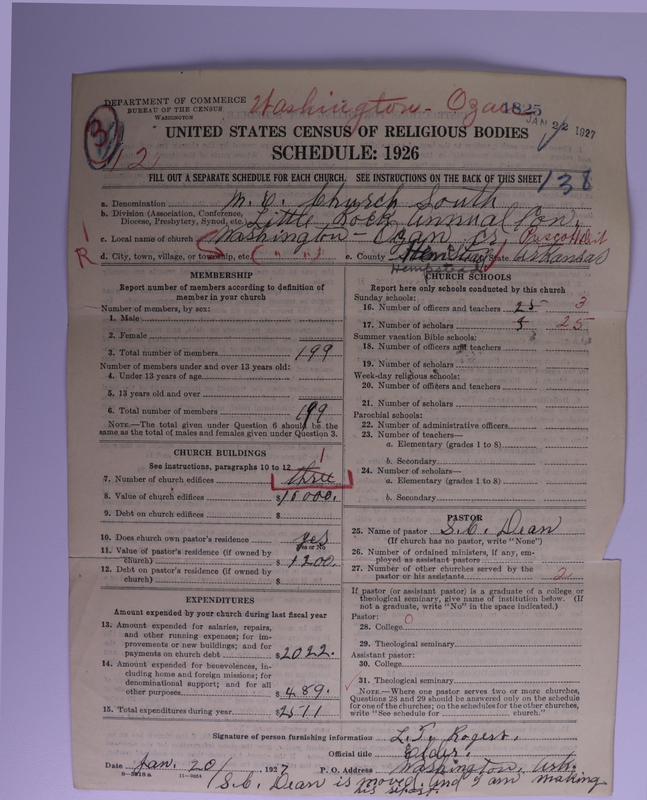 DEPARTMENT OF COMMERCE
BUREAU OF THE CENSUS
WASHINGTON
Washington - Ozan
1825
JAN 22 1927
3
12
UNITED STATES CENSUS OF RELIGIOUS BODIES
SCHEDULE: 1926
FILL OUT A SEPARATE SCHEDULE FOR EACH CHURCH. SEE INSTRUCTIONS ON THE BACK OF THIS SHEET
138
a. Denomination M. E. Church South
b. Division (Association, Conference, Diocese, Presbytery, Synod, etc.) Little Rock Annual Con.
c. Local name of church Washington - Ozan Prescott Dist
d. City, town, village, or township, etc. ( " " ) e. County Hempstead State Arkansas
R
MEMBERSHIP
Report number of members according to definition of
member in your church
Number of members, by sex:
1. Male
2. Female
3. Total number of members 199
Number of members under and over 13 years old:
4. Under 13 years of age
5. 13 years old and over
6. Total number of members 199
NOTE.—The total given under Question 6 should be the
same as the total of males and females given under Question 3.
CHURCH BUILDINGS
See instructions, paragraphs 10 to 12
1
7. Number of church edifices three
8. Value of church edifices $10000.
9. Debt on church edifices $
10. Does church own pastor's residence? yes
Yes or No
11. Value of pastor's residence (if owned by
church) $1200.
12. Debt on pastor's residence (if owned by
church) $
EXPENDITURES
Amount expended by your church during last fiscal year
13. Amount expended for salaries, repairs,
and other running expenses; for im-
provements or new buildings; and for
payments on church debt $2022.
14. Amount expended for benevolences, in-
cluding home and foreign missions; for
denominational support; and for all
other purposes $489.
15. Total expenditures during year $2511
CHURCH SCHOOLS
Report here only schools conducted by this church
Sunday schools:
16. Number of officers and teachers 25 3
17. Number of scholars 25
Summer vacation Bible schools:
18. Number of officers and teachers
19. Number of scholars
Week-day religious schools:
20. Number of officers and teachers
21. Number of scholars
Parochial schools:
22. Number of administrative officers
23. Number of teachers—
a. Elementary (grades 1 to 8)
b. Secondary
24. Number of scholars—
a. Elementary (grades 1 to 8)
b. Secondary
PASTOR
25. Name of pastor S. C. Dean
(If church has no pastor, write "None")
26. Number of ordained ministers, if any, em-
ployed as assistant pastors
27. Number of other churches served by the
pastor or his assistants 2
If pastor (or assistant pastor) is a graduate of a college or
theological seminary, give name of institution below. (If
not a graduate, write "No" in the space indicated.)
Pastor:
28. College O
29. Theological seminary
Assistant pastor:
30. College
31. Theological seminary
NOTE.—Where one pastor serves two or more churches,
Questions 28 and 29 should be answered only on the schedule
for one of the churches; on the schedules for the other churches,
write "See schedule for church."
Signature of person furnishing information L. T. Rogers.
Official title Elder.
Date Jan. 20, 1927 P. O. Address Washington, Ark.
8-5918a 11-9884
S. C. Dean is moved and I am making
his report.